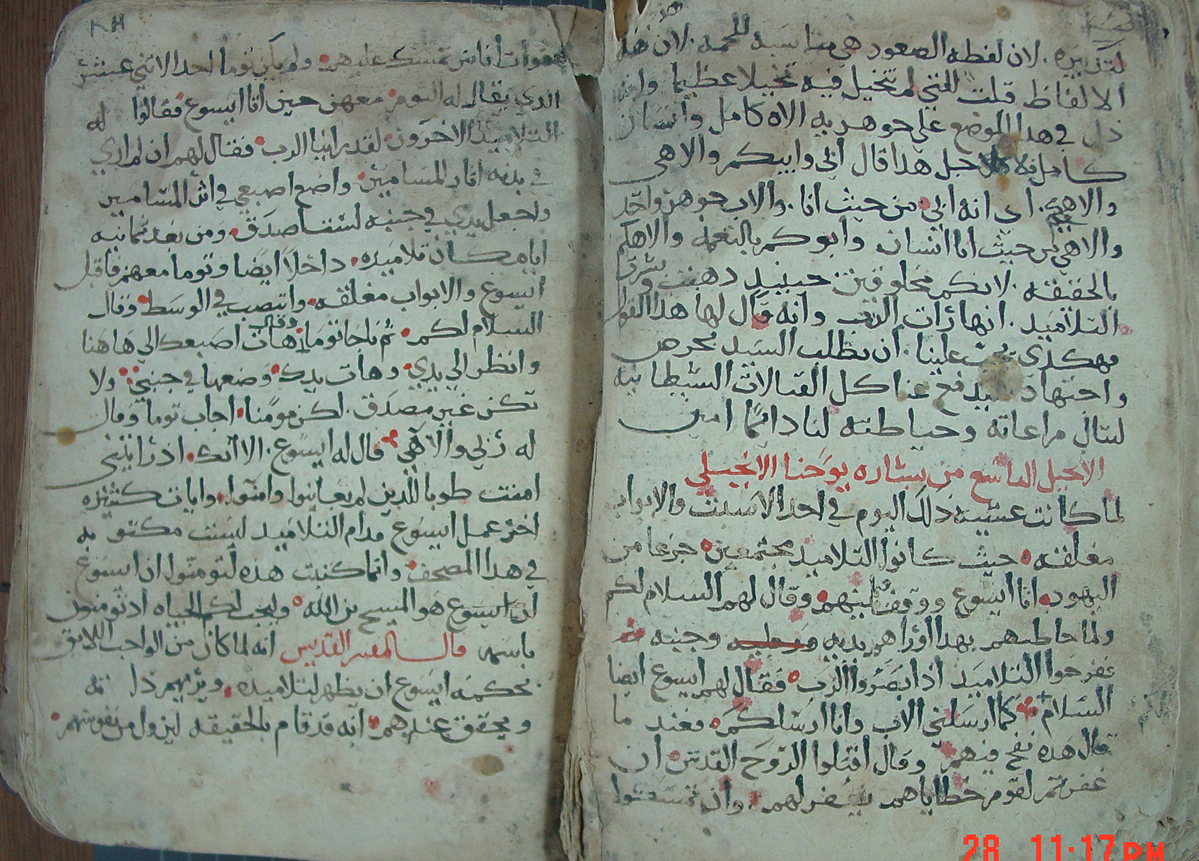 لتدبيره. لان لفظه الصعود هي مناسبه للحمه. لان هذه
الالفاظ قلت التي لم تتخيل فيه تخيلا عظيما
دل في هدا الموضع على جوهريه الاه كامل وانسان
كامل هدا قال الى وابيكم والاهي
والاهكم. اي انه ابي من حيث انا. والاب جوهر واحد
والاهي من حيث انا انسان وابوكم بالنعمه والاهكم
بالحقيقه. لانكم مخلوقين حينيد دهبت
التلاميد. انها رات الرب وانه قال لها هدا القول
فهكدى علينا. ان نطلب السيد بحرص
واجتهاد ليدفع عنا كل القتالات الشيطانيه
لننال مراعاته وحياطته لنا دائما امين
الانجيل التاسع من بشاره يوحنا الانجيلى
لما كانت عشيه دلك اليوم في احد الاسبت والابواب
مغلقه حيث كانوا التلاميد مجتمعين جزعا من
اليهود اتا ايسوع ووقف بينهم وقال لهم السلام لكم
ولما خاطبهم بهدا اوراهم يديه وجنبه
ففرحوا التلاميد اد ابصروا الرب فقال لهم ايسوع ايضا
السلام كما ارسلني الاب وانا ارسلكم فعند ما
قال هده نفخ فيهم وقال اقبلوا الروح القدس ان
غفرتم لقوم خطاياهم يغفر لهم. وان تمسكتوا
بهفوات اناس تمسك عليهم ولم يكن توما احد الاتني عشر
الدي يقال له التوم معهم حين اتا ايسوع فقالوا له
التلاميد الاخرون لقد راينا الرب فقال لهم ان لم اري
في يديه اتار المسامير واضع اصبعي في اتر المسامير
واجعل يدي في جنبه لست اصدق ومن بعد تمانيه
ايام كان تلاميده داخلا ايضا وتوما معهم فاقبل
ايسوع والابواب مغلقه وانتصب في الوسط وقال
السلام لكم ثم ناحا توما وقال هات اصبعك الى هاهنا
وانظر الي يدي وهات يدك وضعها في جنبي ولا
تكن غير مصدق. لكن مومنا اجاب توما وقال
له ربي والاهي قال له ايسوع. الا انك اد رايتني
امنت طوبا للدين لم يعاينوا وامنوا وايات كتيره
اخر عمل ايسوع قدام التلاميد ليست مكتوبه
في هدا المصحف وانما كتبت هده لتومنوا ان ايسوع
هو المسيح بن الله وليجب لكم الحياه اد تومنون
باسمه قال المفسر القديس انه لما كان من الواجب اللايق
بحكمه ايسوع ان يظهر لتلاميده ويريهم داته
ويحقق عندهم انه قد قام بالحقيقه ليزول من نفوسهم